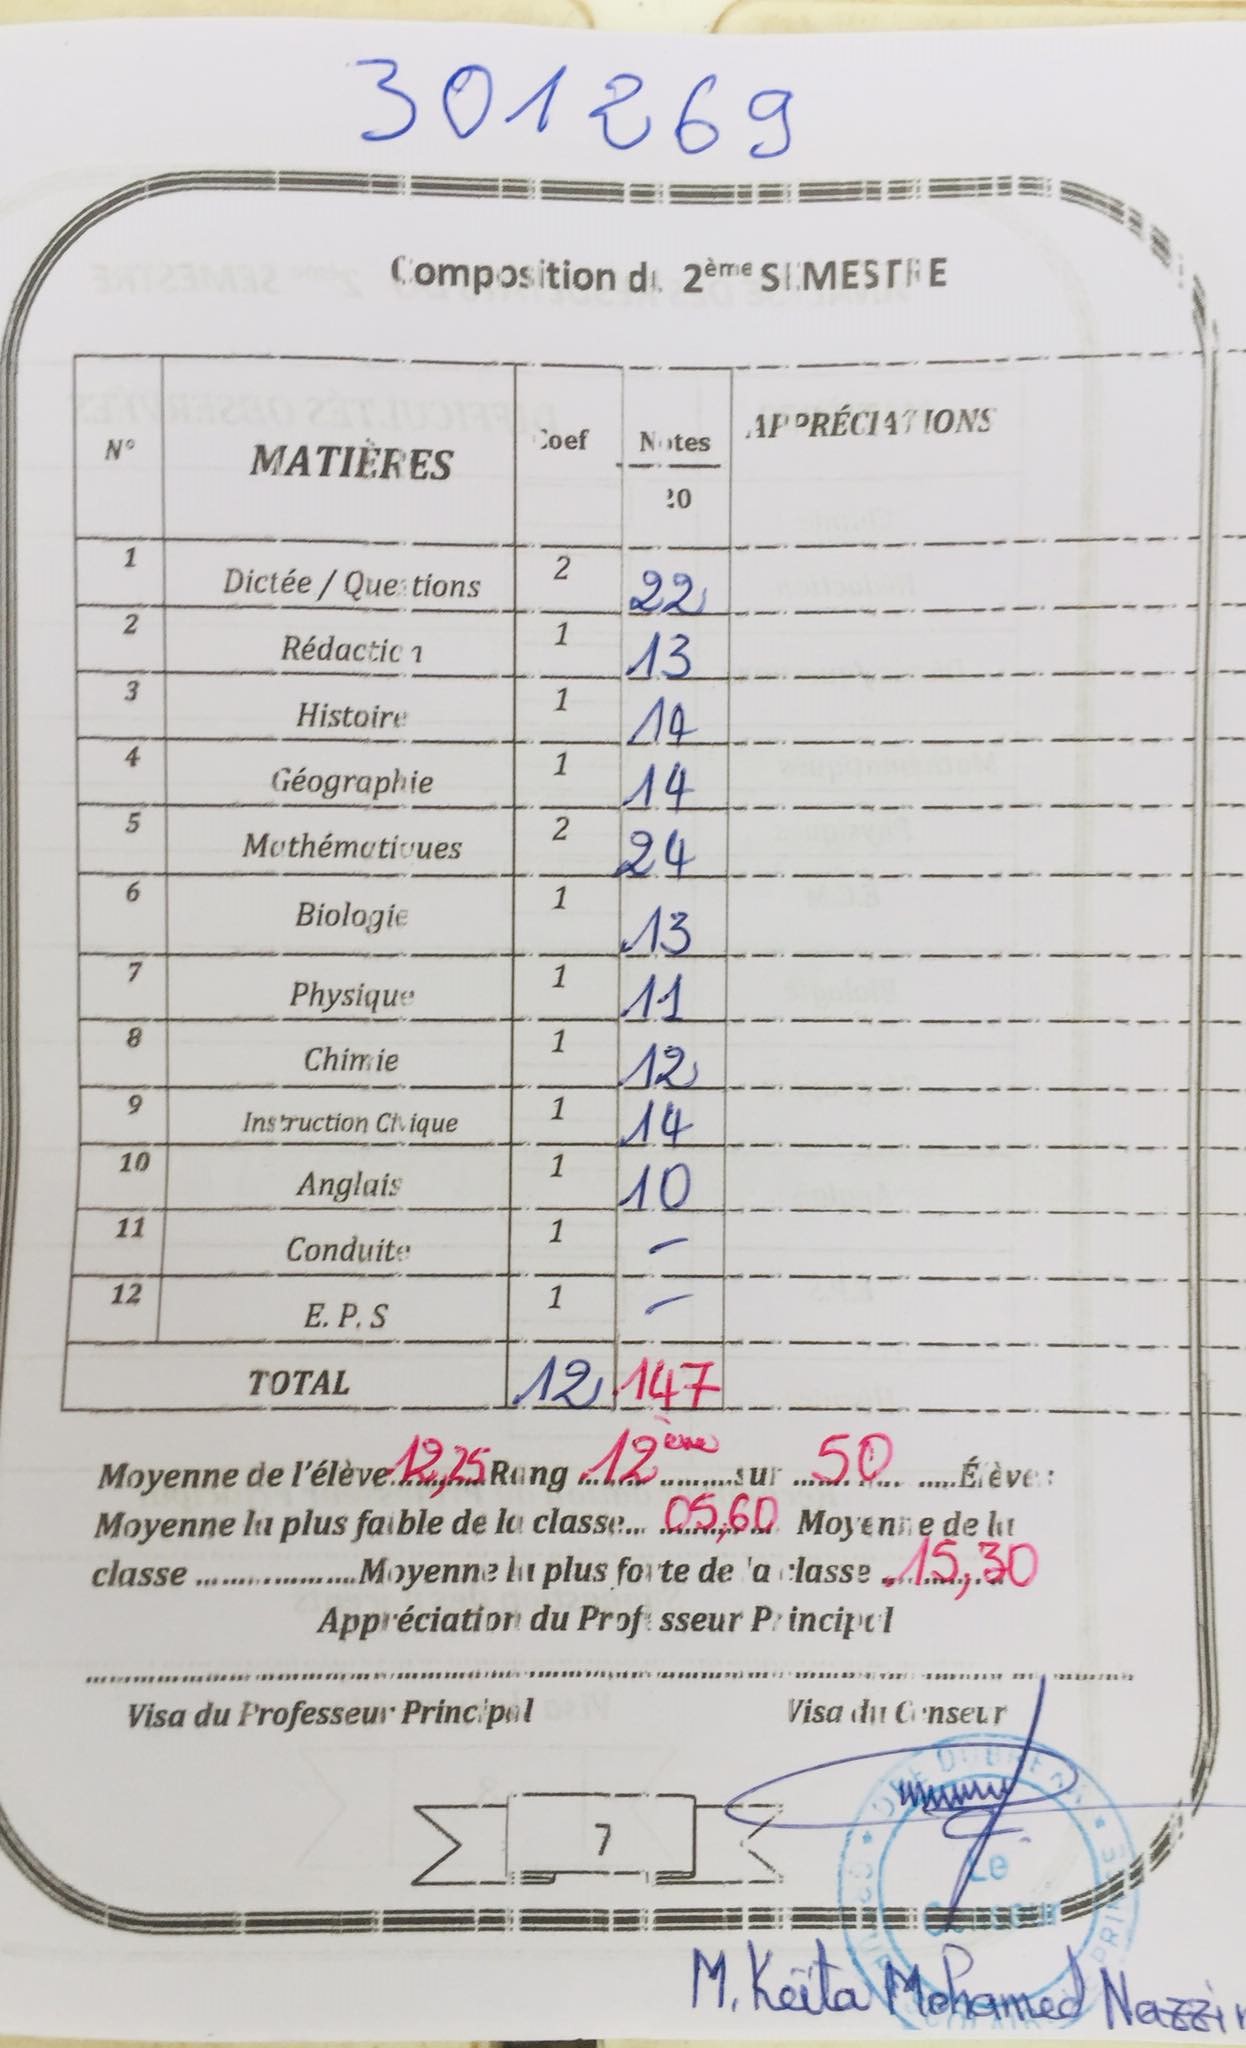 301269
Composition du 2ème SEMESTRE
N° MATIÈRES Coef Notes APPRÉCIATIONS
20
1 Dictée / Questions 2 22
2 Rédaction 1 13
3 Histoire 1 14
4 Géographie 1 14
5 Mathématiques 2 24
6 Biologie 1 13
7 Physique 1 11
8 Chimie 1 12
9 Instruction Civique 1 14
10 Anglais 1 10
11 Conduite 1 –
12 E. P. S 1 –
TOTAL 12 147
Moyenne de l'élève 12,25 Rang 12ème sur 50 Élèves
Moyenne la plus faible de la classe... 05,60 Moyenne de la
classe ..................Moyenne la plus forte de la classe 15,30
Appréciation du Professeur Principal
Visa du Professeur Principal Visa du Censeur
7
Le
Censeur
M. Keïta Mohamed